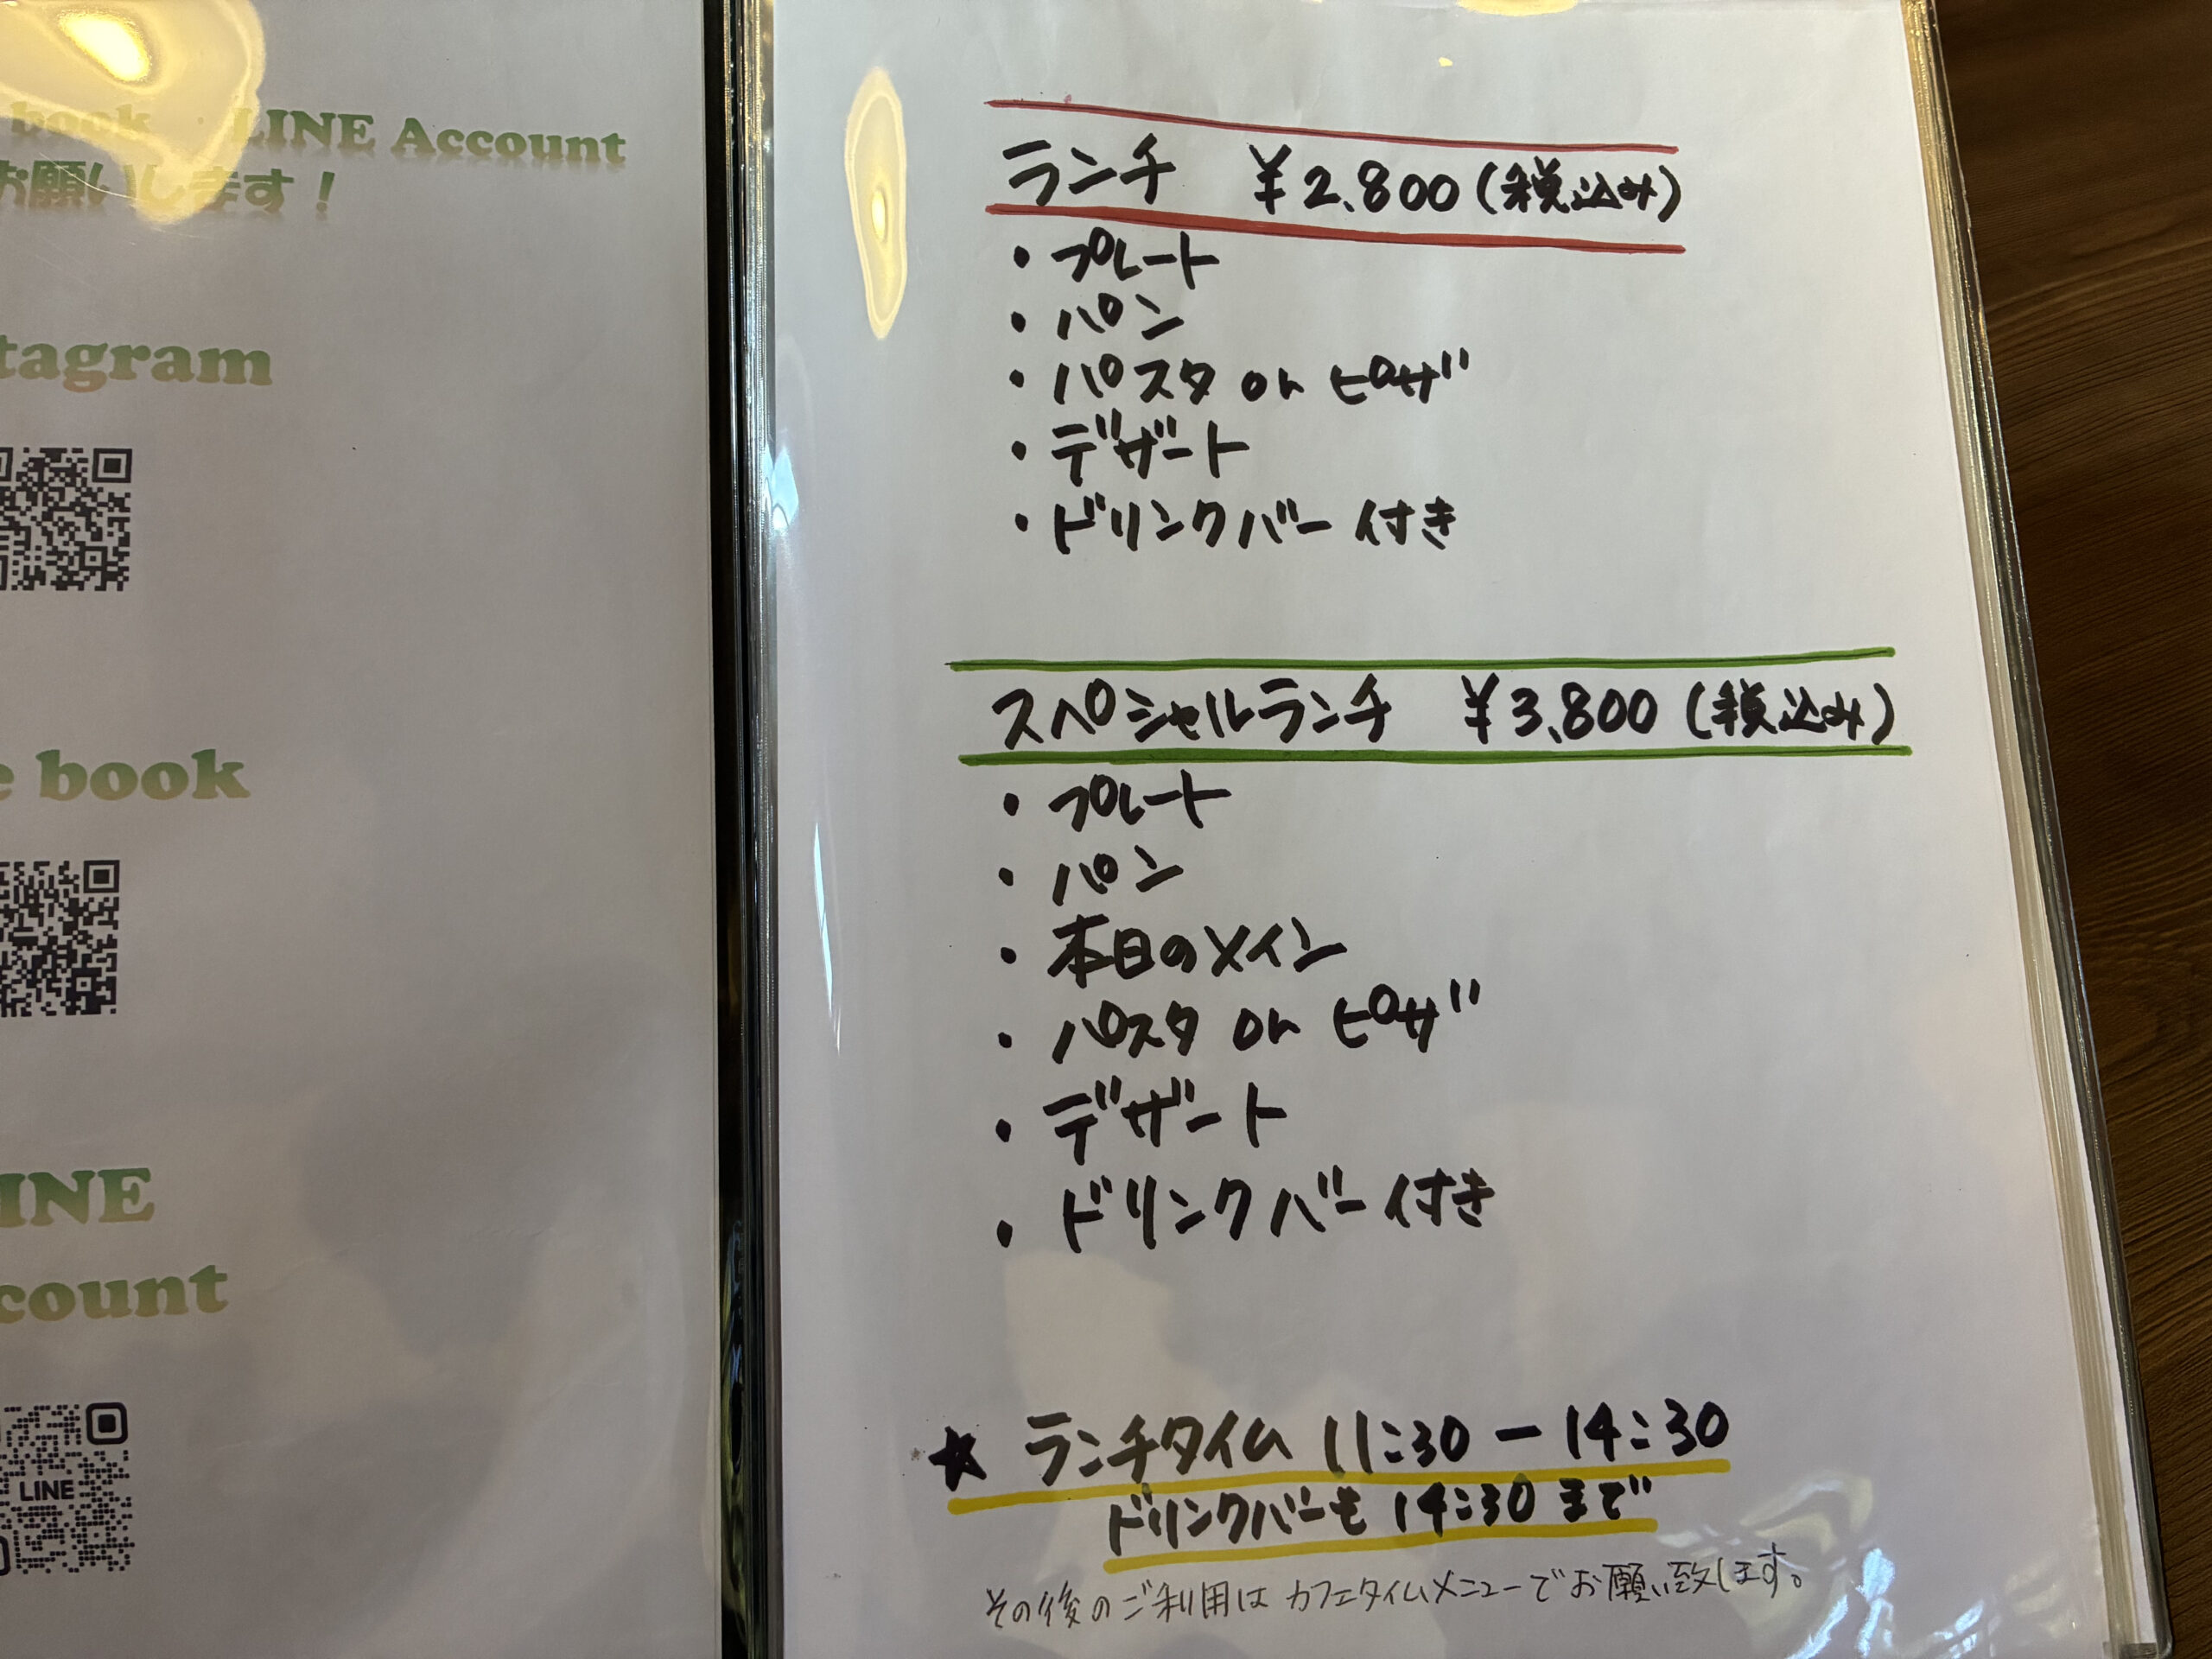 book LINE Account
お願いします！
tagram
e book
INE
count
LINE
ランチ ¥2,800(税込み)
・プレート
・パン
・パスタ or ピザ
・デザート
・ドリンクバー付き
スペシャルランチ ¥3,800(税込み)
・プレート
・パン
・本日のメイン
・パスタ or ピザ
・デザート
・ドリンクバー付き
★ ランチタイム 11:30ー14:30
ドリンクバーも 14:30まで
その後のご利用は カフェタイムメニューでお願い致します。